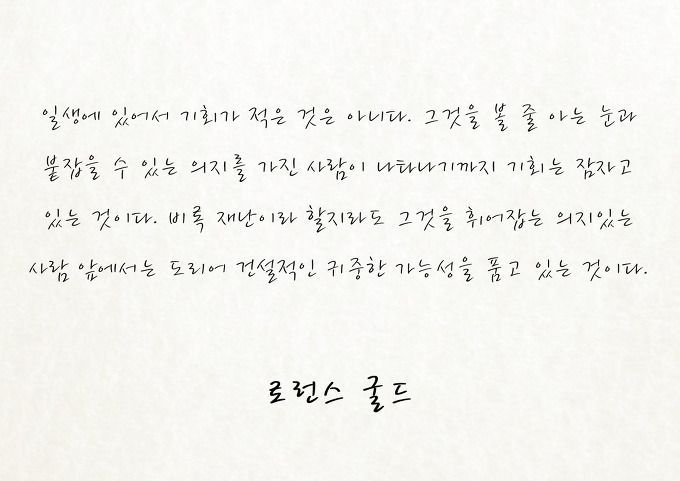 일생에 있어서 기회가 적은 것은 아니다. 그것을 볼 줄 아는 눈과
붙잡을 수 있는 의지를 가진 사람이 나타나기까지 기회는 잠자고
있는 것이다. 비록 재난이라 할지라도 그것을 휘어잡는 의지있는
사람 앞에서는 도리어 건설적인 귀중한 가능성을 품고 있는 것이다.
로런스 굴드